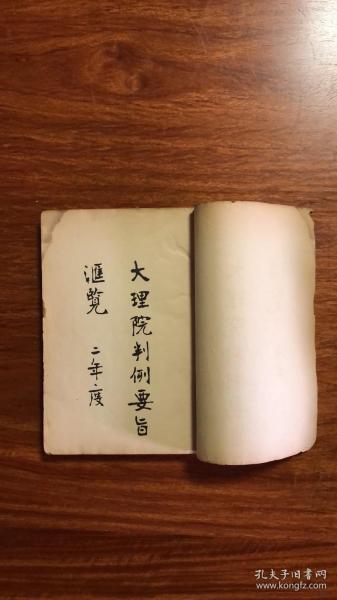 大理院判例要旨
滙覽 二年度
孔夫子旧书网
www.kongfz.com